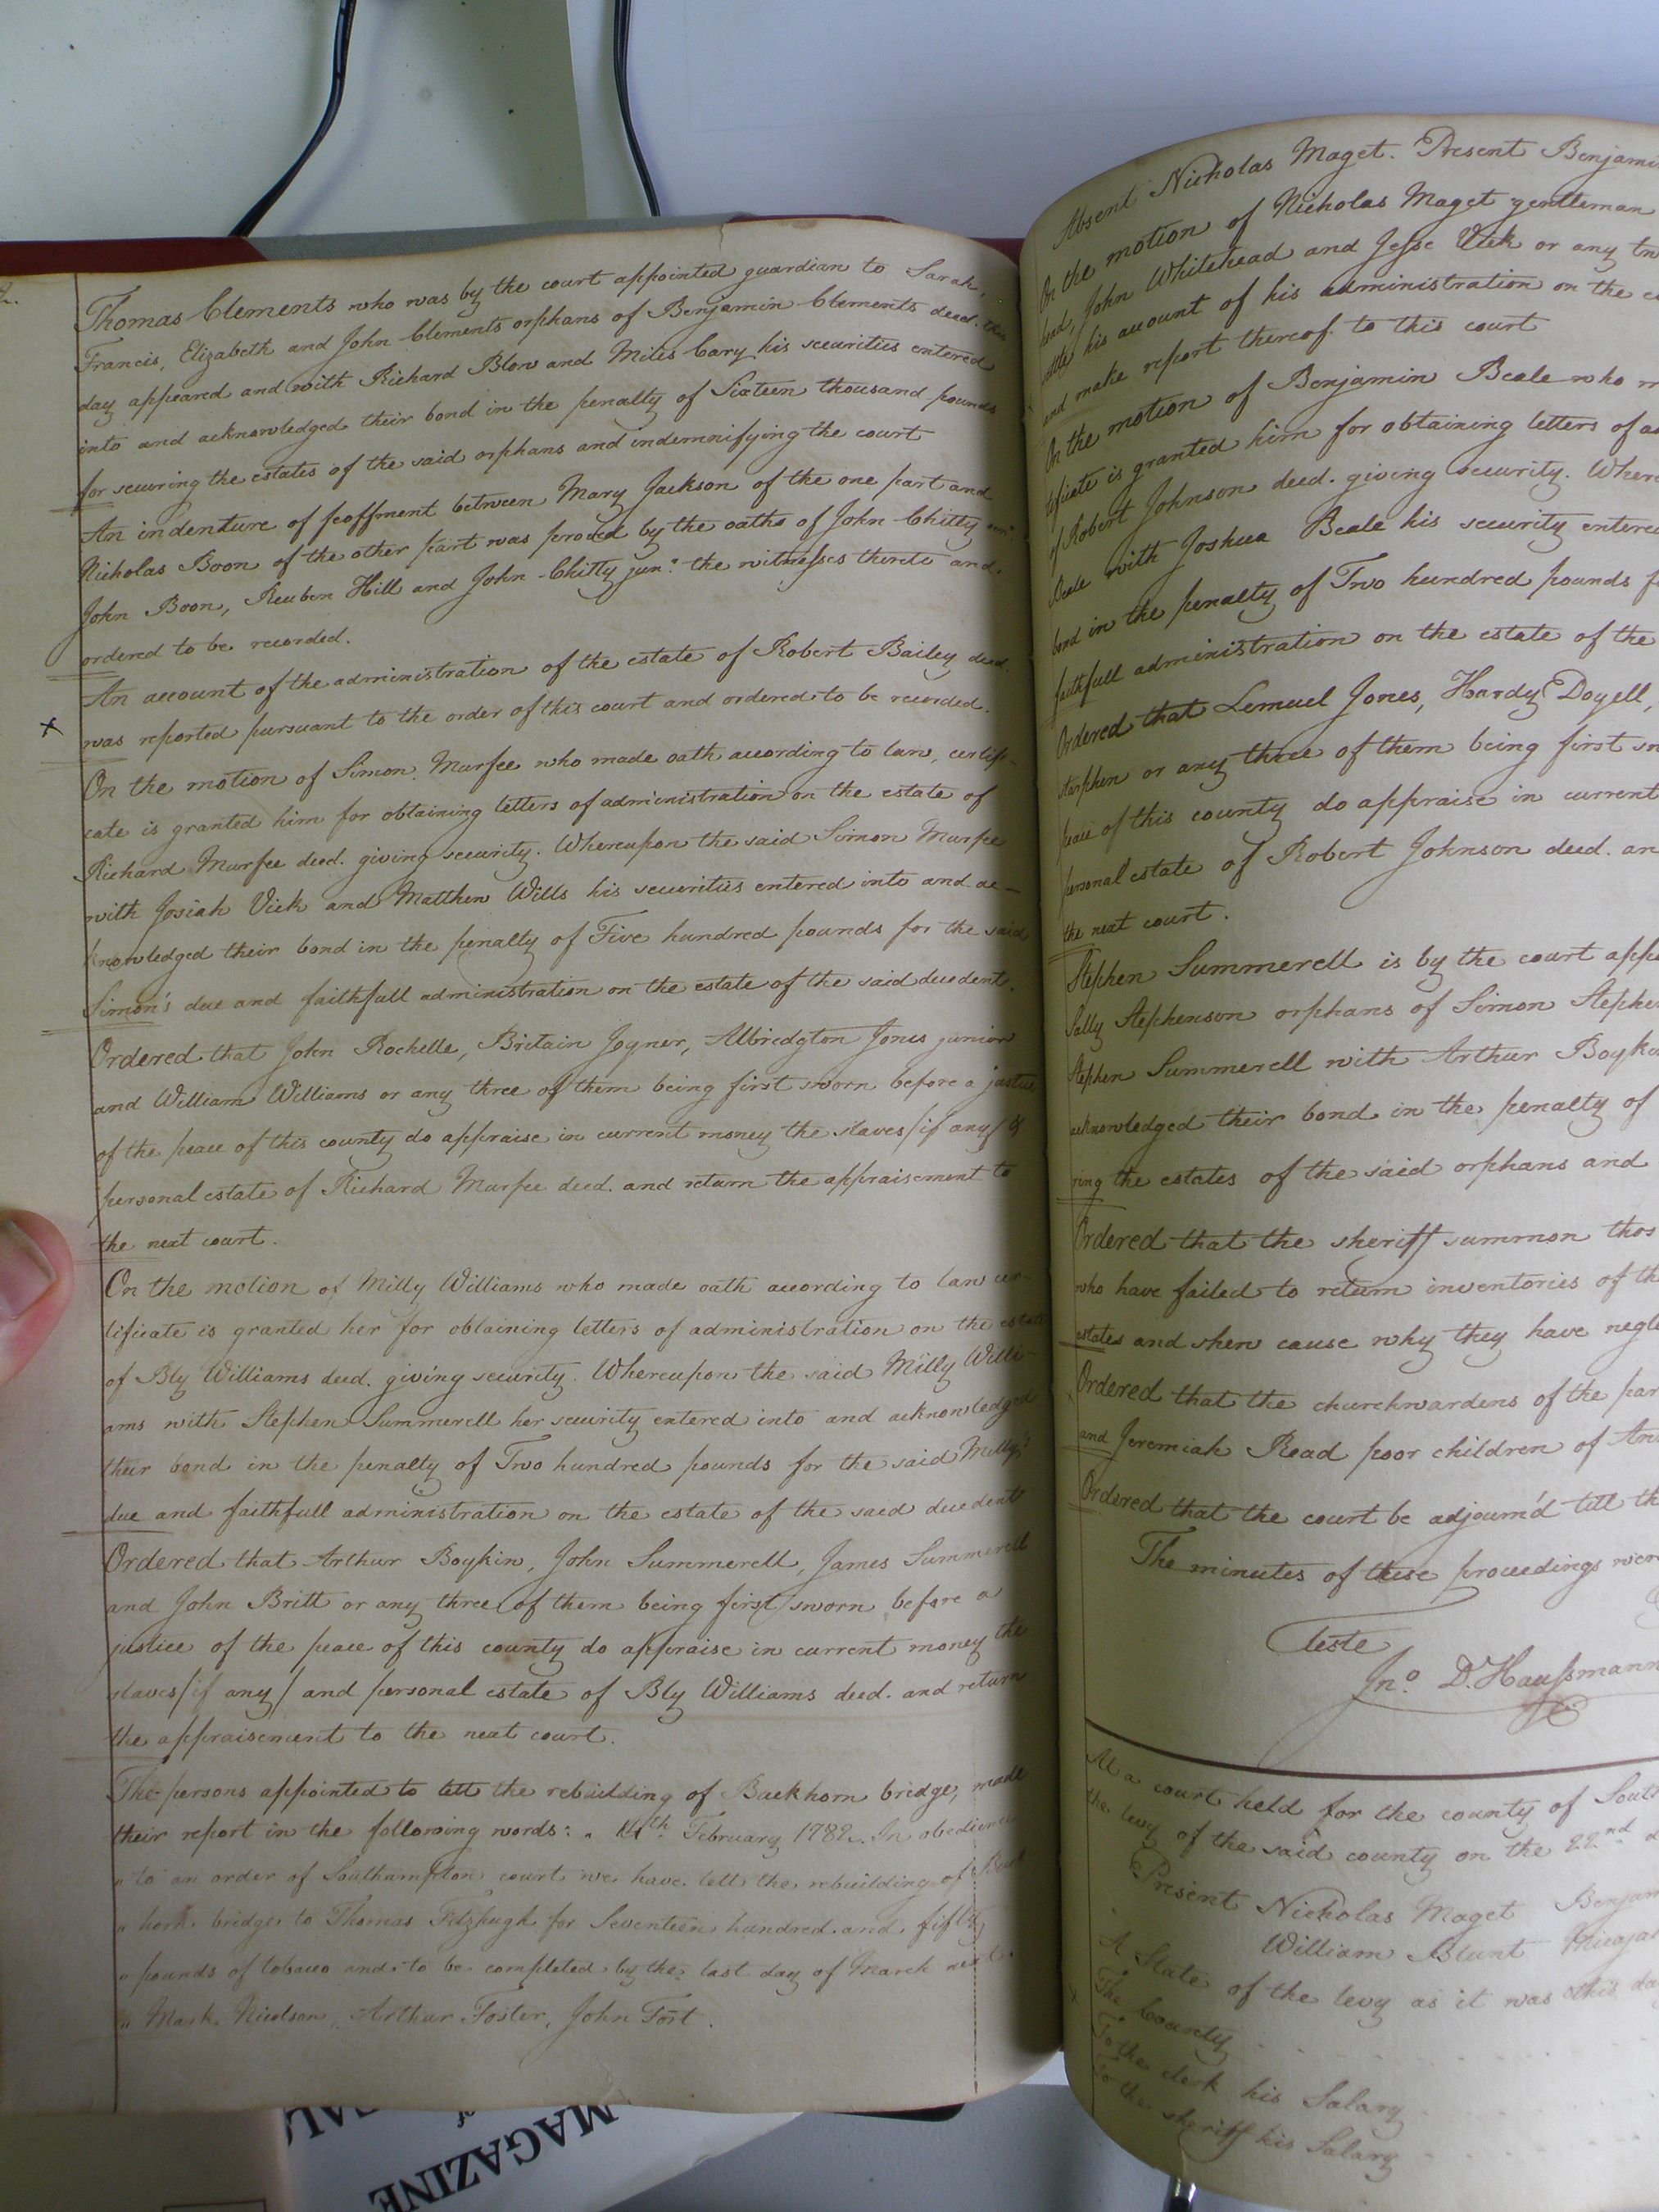 Thomas Clements who was by the court appointed guardian to Sarah,
Francis, Elizabeth and John Clements orphans of Benjamin Clements decd. this
day appeared and with Richard Blow and Miles Cary his securities entered
into and acknowledged their bond in the penalty of Sixteen thousand pounds
for securing the estates of the said orphans and indemnifying the court
An indenture of feoffment between Mary Jackson of the one part and
Nicholas Boon of the other part was proved by the oaths of John Chitty sen.r
John Boon, Reuben Hill and John Chitty jun.r the witnesses thereto and
ordered to be recorded.
An account of the administration of the estate of Robert Bailey decd.
x was reported pursuant to the order of this court and ordered to be recorded.
On the motion of Simon Murfee who made oath according to law, certifi-
cate is granted him for obtaining letters of administration on the estate of
Richard Murfee decd. giving security. Whereupon the said Simon Murfee
with Josiah Vick and Matthew Wills his securities entered into and ac-
knowledged their bond in the penalty of Five hundred pounds for the said
Simon's due and faithfull administration on the estate of the said decedent.
Ordered that John Rochelle, Britain Joyner, Albridgton Jones junior
and William Williams or any three of them being first sworn before a justice
of the peace of this county do appraise in current money the slaves/if any/ &
personal estate of Richard Murfee decd. and return the appraisement to
the next court.
On the motion of Milly Williams who made oath according to law cer-
tificate is granted her for obtaining letters of administration on the estate
of Bly Williams decd. giving security. Whereupon the said Milly Willi-
ams with Stephen Summerell her security entered into and acknowledged
their bond in the penalty of Two hundred pounds for the said Milly's
due and faithfull administration on the estate of the said decedent
Ordered that Arthur Boykin, John Summerell, James Summerell
and John Britt or any three of them being first sworn before a
justice of the peace of this county do appraise in current money the
slaves/if any/ and personal estate of Bly Williams decd. and return
the appraisement to the next court.
The persons appointed to lett the rebuilding of Buckhorn bridge, made
their report in the following words: " 14th February 1782. In obedience
" to an order of Southampton court we have lett the rebuilding of Buck
" horn bridge to Thomas Fitzhugh for Seventeen hundred and fifty
" pounds of tobacco and to be completed by the last day of March next.
" Mark Nicolson, Arthur Foster, John Fort.
Absent Nicholas Maget. Present Benjami
On the motion of Nicholas Maget gentleman
John Whitehead and Jesse Vick or any
settle his account of his administration on the
and make report thereof to this court
On the motion of Benjamin Beale who
tificate is granted him for obtaining letters of
of Robert Johnson decd. giving security. Where
Beale with Joshua Beale his security entere
bond in the penalty of Two hundred pounds f
faithfull administration on the estate of the
Ordered that Lemuel Jones, Hardy Doyell,
or any three of them being first
peace of this county do appraise in current
personal estate of Robert Johnson decd. an
the next court.
Stephen Summerell is by the court appo
Sally Stephenson orphans of Simon Stephe
Stephen Summerell with Arthur Boyki
acknowledged their bond in the penalty of
ring the estates of the said orphans and
Ordered that the sheriff summon thos
who have failed to return inventories of th
estates and shew cause why they have negl
Ordered that the churchwardens of the par
and Jeremiah Read poor children of An
Ordered that the court be adjourn'd till th
The minutes of these proceedings wer
Teste
Jno. D. Haussmann
At a court held for the county of South
the levy of the said county on the 22nd d
Present Nicholas Maget Benjam
William Blunt Micajah
A State of the levy as it was this day
The County
To the clerk his Salary
To the sheriff his Salary
MAGAZINE
of